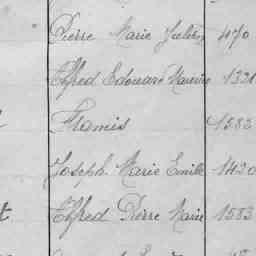 Pierre Marie Julien 470
Alfred Edouard Maurice 1321
Francis 1582
Joseph Marie Emile 1420
t Alfred Pierre Marie 1583